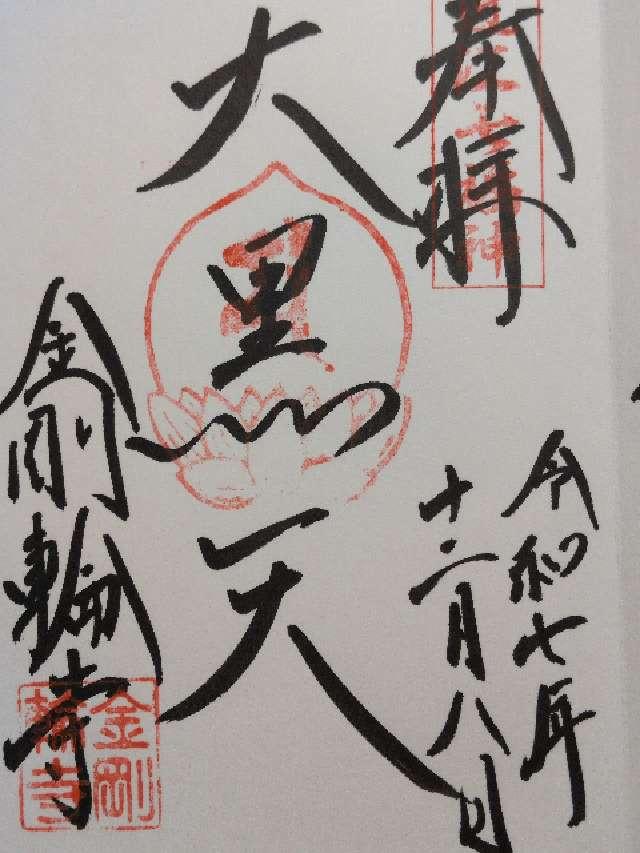 奉拝
令和七年
十二月八日
大黒天
金剛輪寺
金剛
輪寺